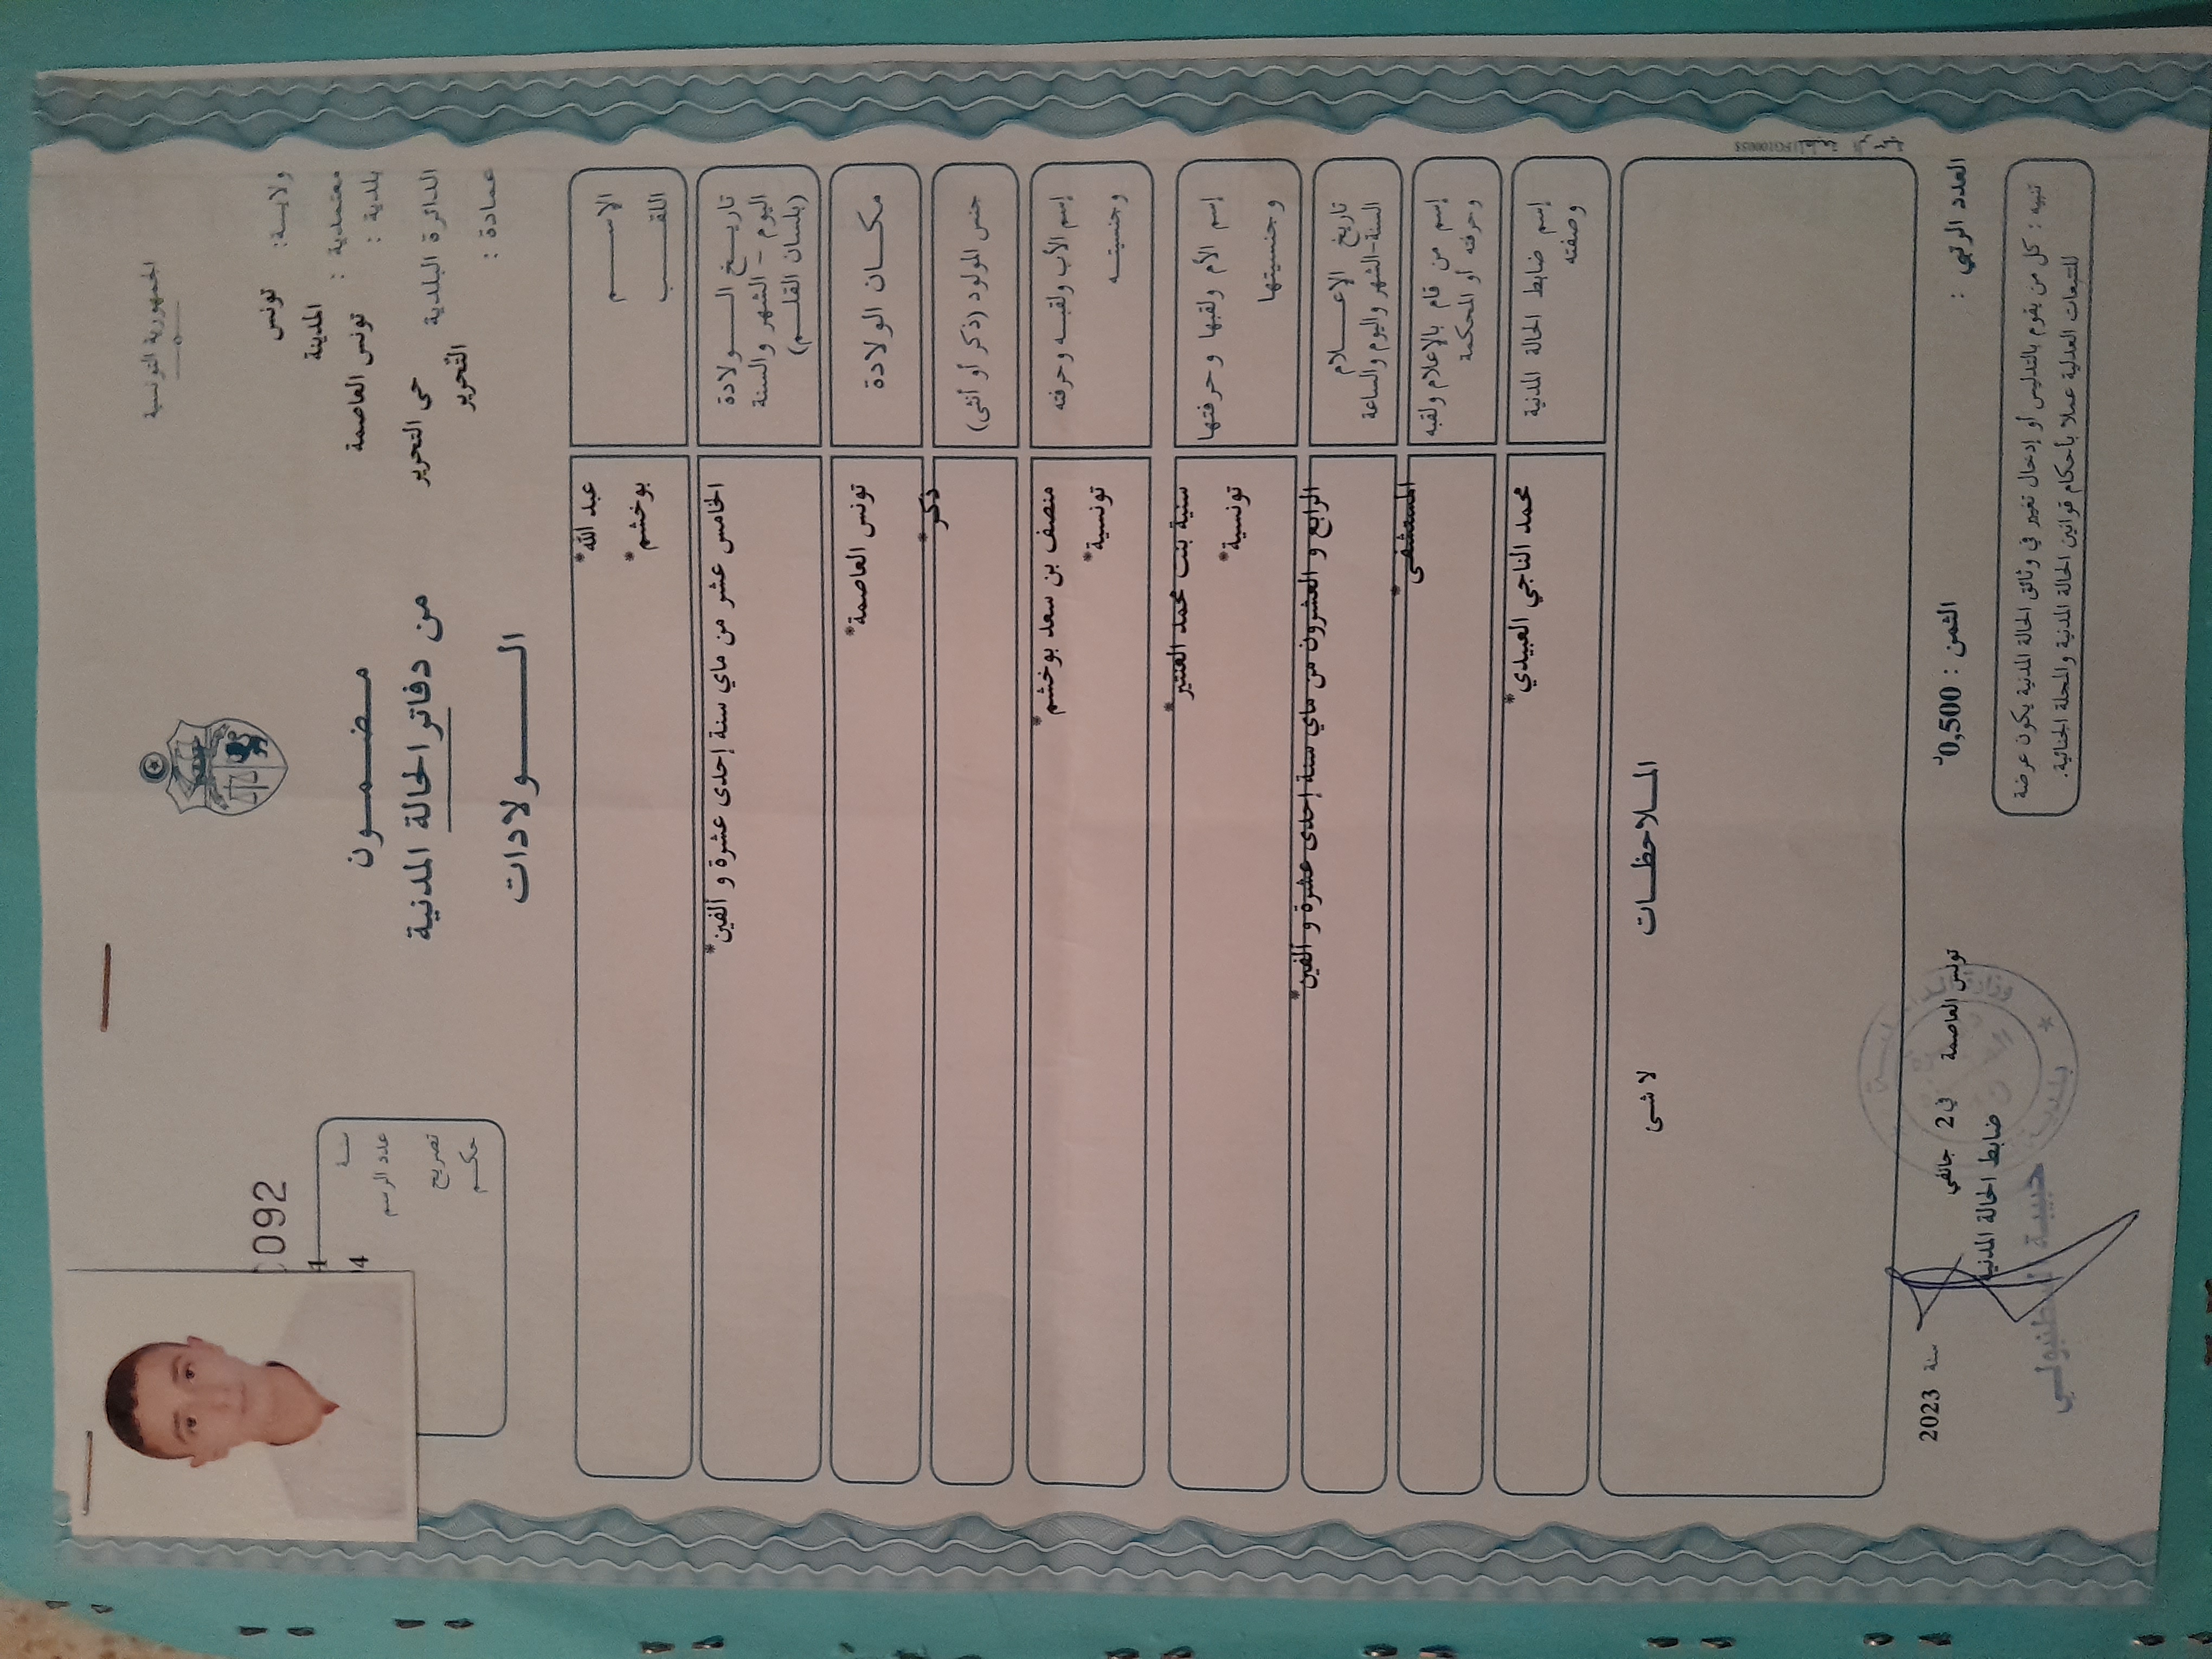 الجمهورية التونسية
ولاية: تونس
معتمدية : المدينة
بلدية : تونس العاصمة
الدائرة البلدية حي التحرير
عمادة : التحرير
مضمون
من دفاتر الحالة المدنية
الولادات
092
سنة 1
عدد الرسم 4
تصريح
حكم
الاسم عبد الله*
اللقب بوخشم*
تاريخ الولادة الخامس عشر من ماي سنة إحدى عشرة و ألفين*
اليوم - الشهر والسنة
(بلسان القلم)
مكان الولادة تونس العاصمة*
جنس المولود (ذكر أو أنثى) ذكر*
إسم الأب ولقبه وحرفته منصف بن سعد بوخشم*
وجنسيته تونسية*
إسم الأم ولقبها وحرفتها سنية بنت محمد العنتير*
وجنسيتها تونسية*
تاريخ الإعلام الرابع و العشرون من ماي سنة إحدى عشرة و ألفين*
السنة-الشهر واليوم والساعة
إسم من قام بالإعلام ولقبه المستشفى*
وحرفته أو المحكمة
إسم ضابط الحالة المدنية محمد الناجي العبيدي*
وصفته
الملاحظات
لا شى
العدد الرتبي : الثمن : 0,500د تونس العاصمة في 2 جانفي سنة 2023
ضابط الحالة المدنية
تنبيه : كل من يقوم بالتدليس أو إدخال تغيير في وثائق الحالة المدنية يكون عرضة
للتتبعات العدلية عملا بأحكام قوانين الحالة المدنية والمجلة الجنائية.